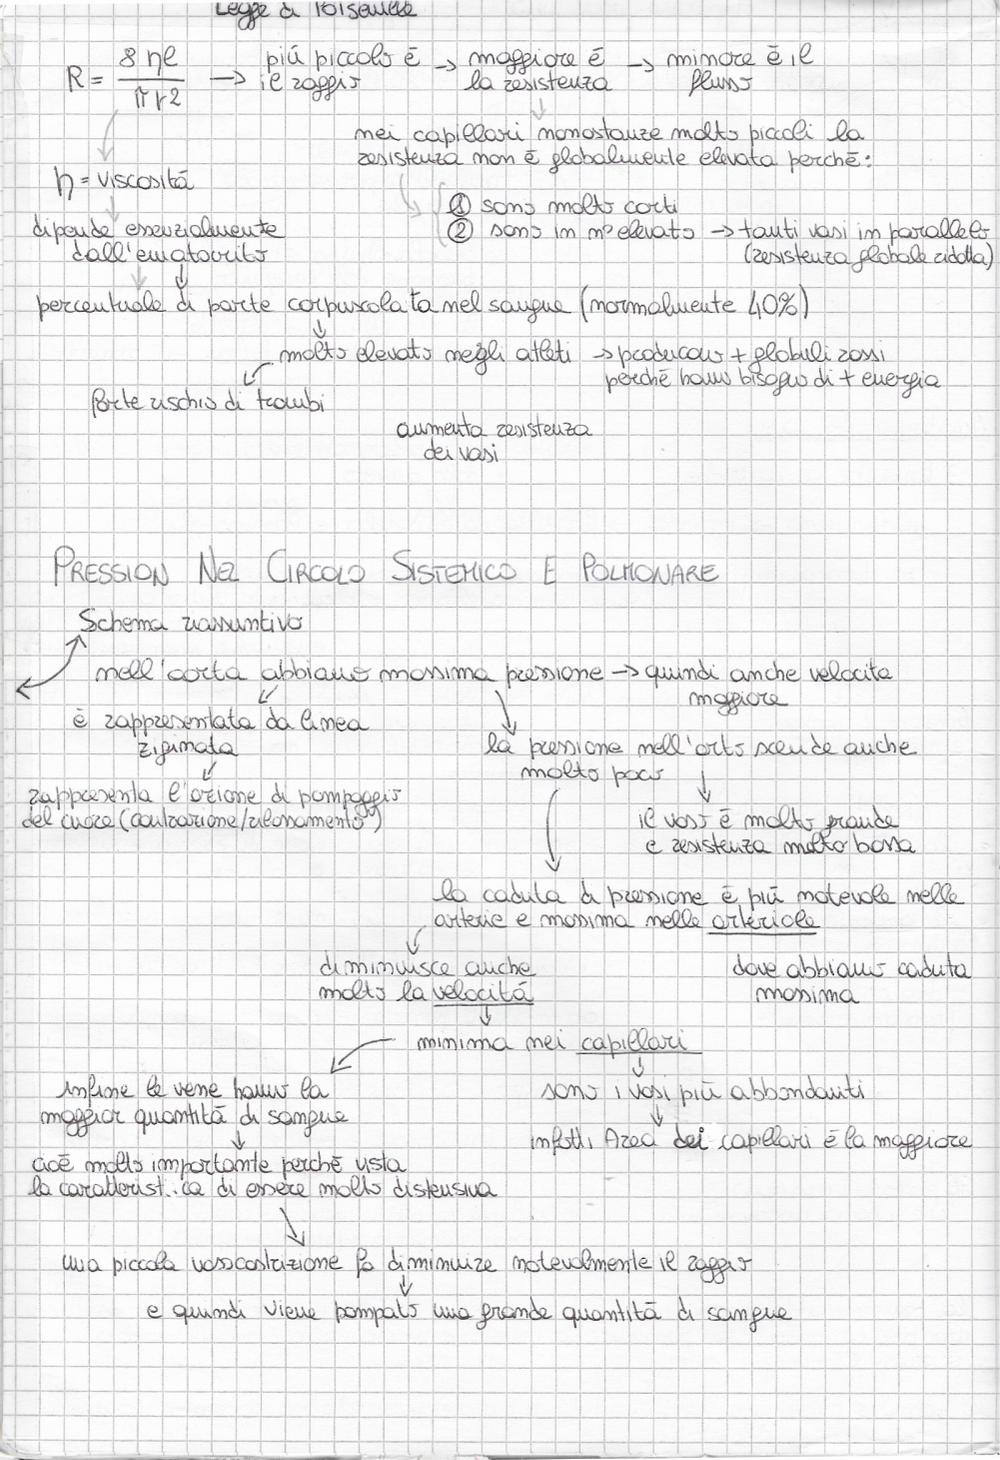 Legge di Poiseuille
R = 8 η l / π r 2 → più piccolo è il raggio → maggiore è la resistenza → minore è il flusso
nei capillari nonostante molto piccoli la
resistenza non è globalmente elevata perchè:
η = viscosità
① sono molto corti
② sono in n° elevato → tanti vasi in parallelo
(resistenza globale ridotta)
dipende essenzialmente
dall'ematocrito
percentuale di parte corpuscolata nel sangue (normalmente 40%)
molto elevato negli atleti → producono + globuli rossi
perchè hanno bisogno di + energia
forte rischio di trombi
aumenta resistenza
dei vasi
PRESSION NEL CIRCOLO SISTEMICO E POLMONARE
Schema riassuntivo
nell'aorta abbiamo massima pressione → quindi anche velocità
maggiore
è rappresentata da linea
zigrinata
la pressione nell'aorta scende anche
molto poco
rappresenta l'azione di pompaggio
del cuore (contrazione/rilassamento)
il vaso è molto grande
e resistenza molto bassa
la caduta di pressione è più notevole nelle
arterie e massima nelle arteriole
diminuisce anche
molto la velocità
dove abbiamo caduta
massima
minima nei capillari
infine le vene hanno la
maggior quantità di sangue
sono i vasi più abbondanti
infatti Area dei capillari è la maggiore
cioè molto importante perchè vista
la caratteristica di essere molto distensiva
una piccola vasocostrizione fa diminuire notevolmente il raggio
e quindi viene pompato una grande quantità di sangue